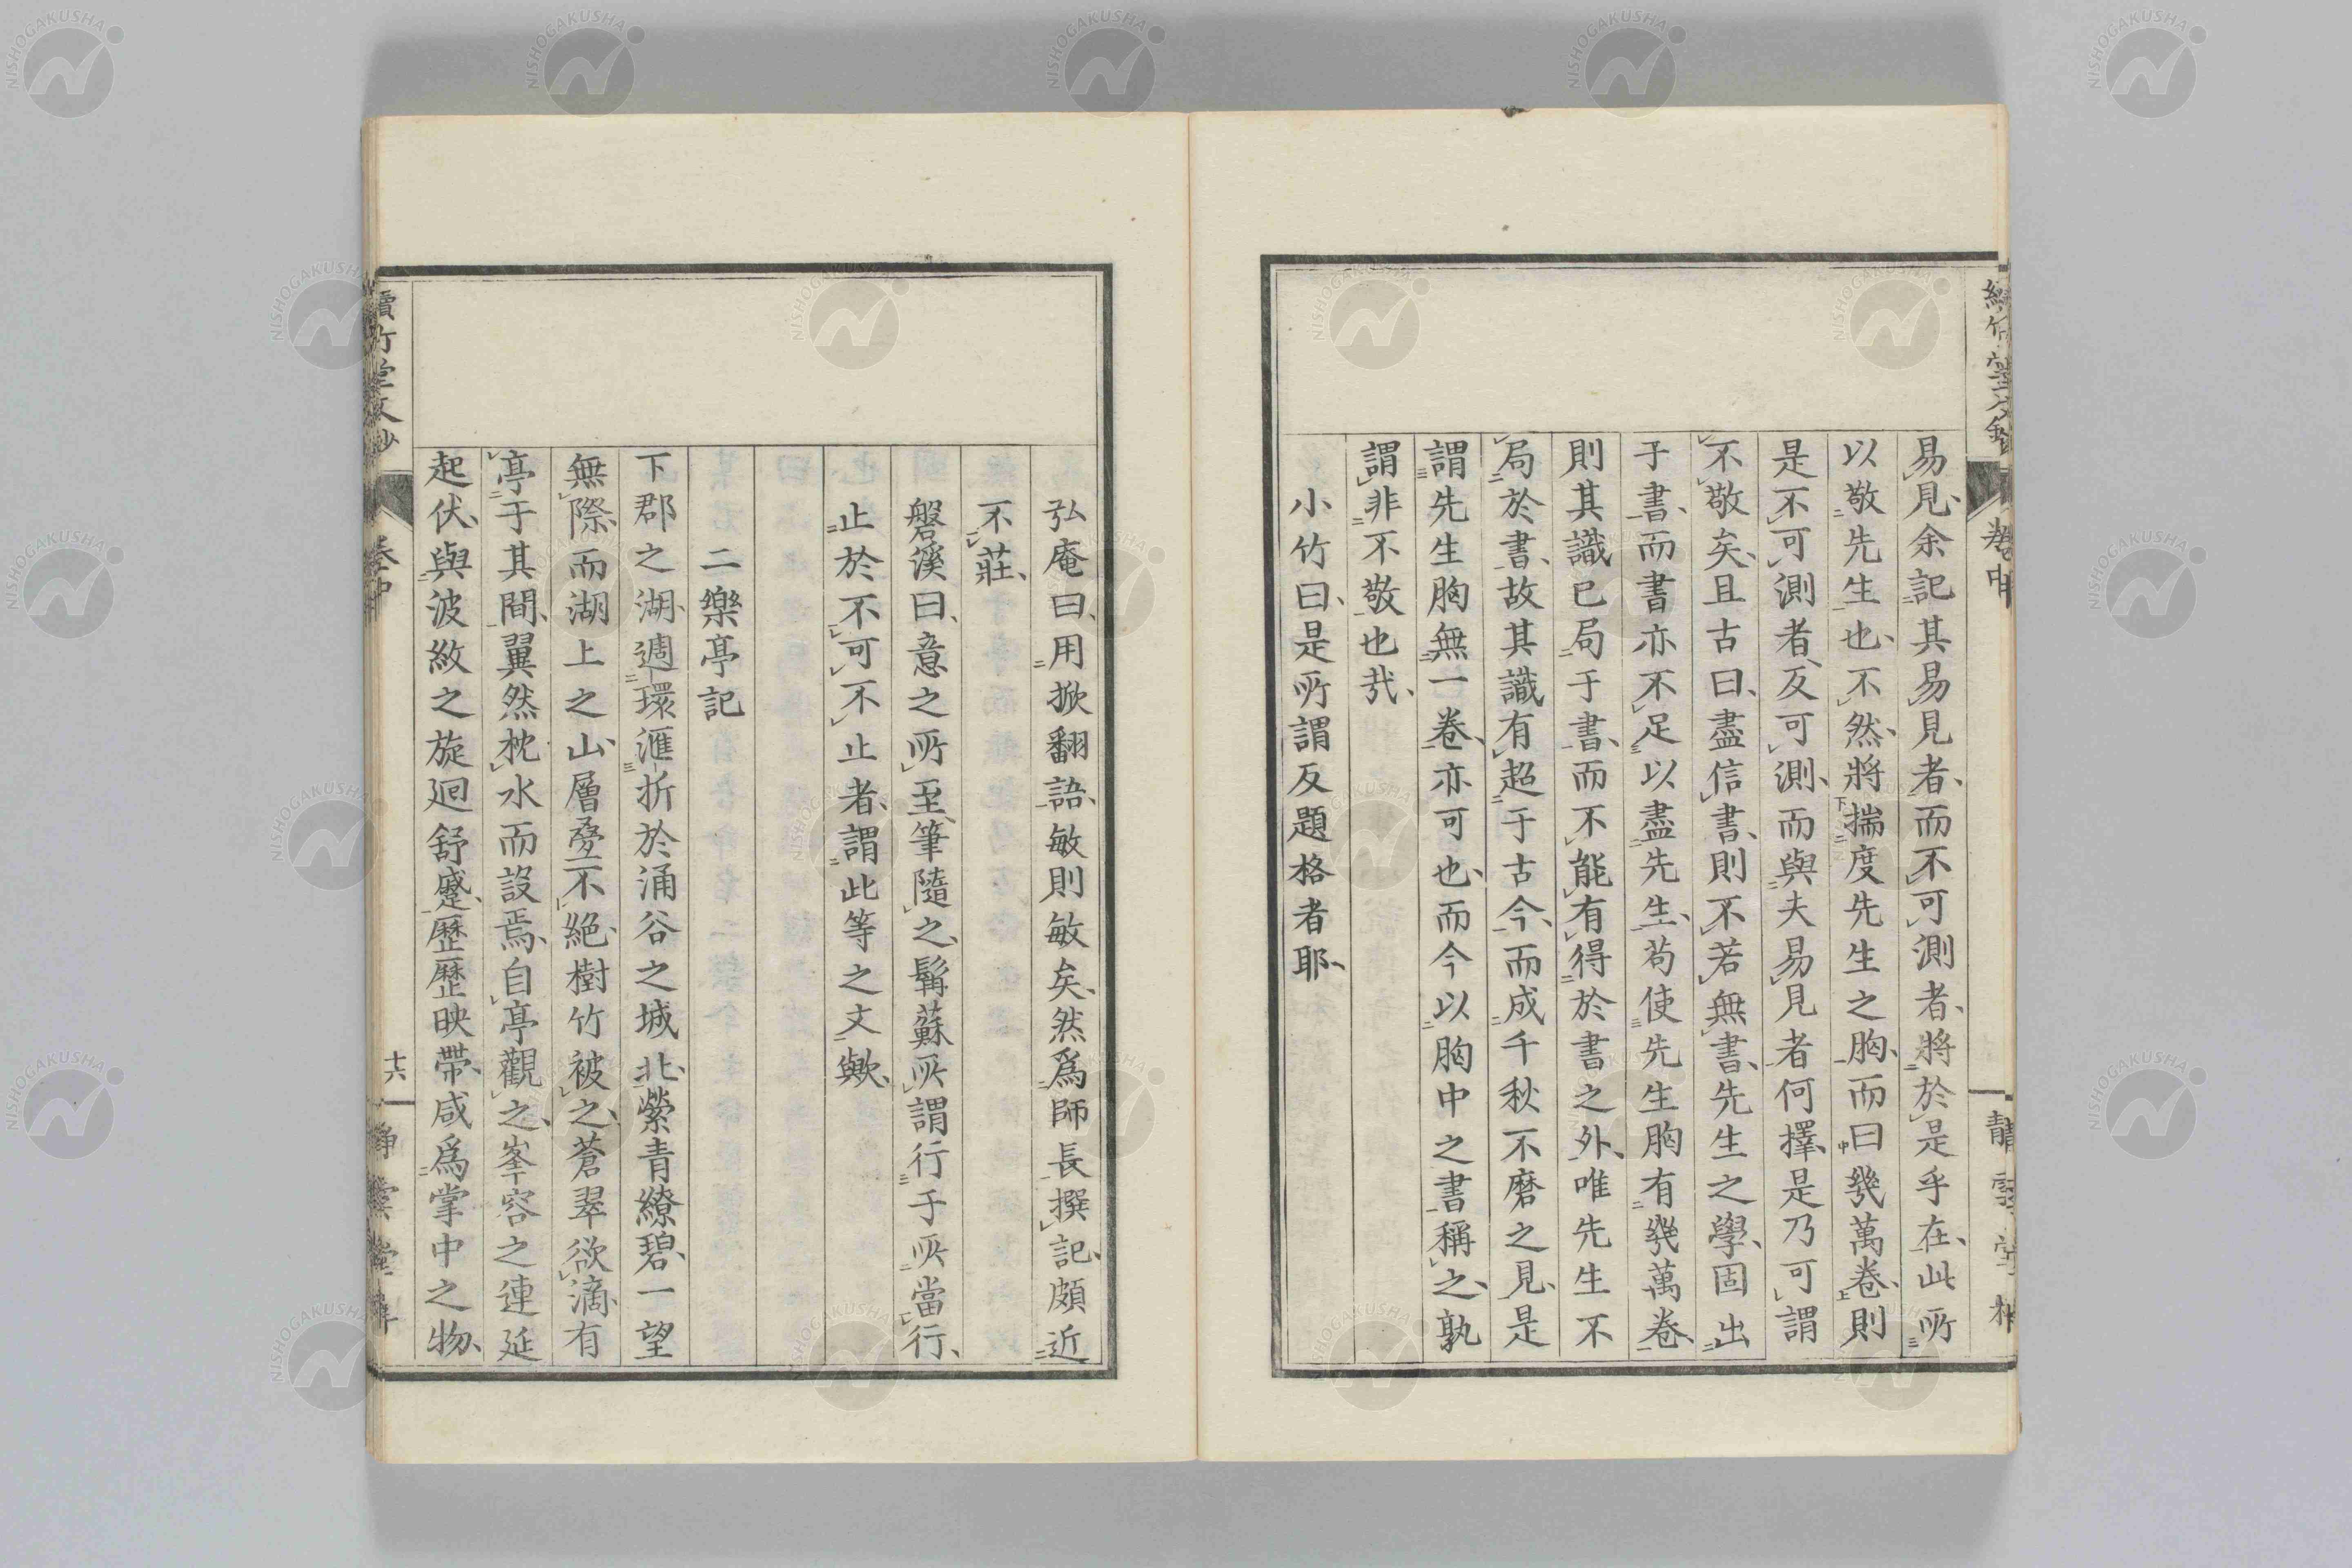 易見余記其易見者而不可測者將於是乎在此所
以敬先生也不然將揣度先生之胸而曰幾萬卷則
是不可測者反可測而與夫易見者何擇是乃可謂
不敬矣且古曰盡信書則不若無書先生之學固出
于書而書亦不足以盡先生苟使先生胸有幾萬卷
則其識已局于書而不能有得於書之外唯先生不
局於書故其識有超于古今而成千秋不磨之見是
謂先生胸無一卷亦可也而今以胸中之書稱之孰
謂非不敬也哉
小竹曰是所謂反題格者耶
弘庵曰用掀翻語敏則敏矣然爲師長撰記頗近
不莊
磐溪曰意之所至筆隨之髯蘇所謂行于所當行
止於不可不止者謂此等之文歟
二樂亭記
下郡之湖週環滙折於涌谷之城北縈青繚碧一望
無際而湖上之山層疊不絕樹竹被之蒼翠欲滴有
亭于其間翼然枕水而設焉自亭觀之峯容之連延
起伏與波紋之旋廻舒蹙歷歷映帶咸爲掌中之物
續竹堂文鈔
卷中
十六
靜雲堂梓
NISHOGAKUSHA